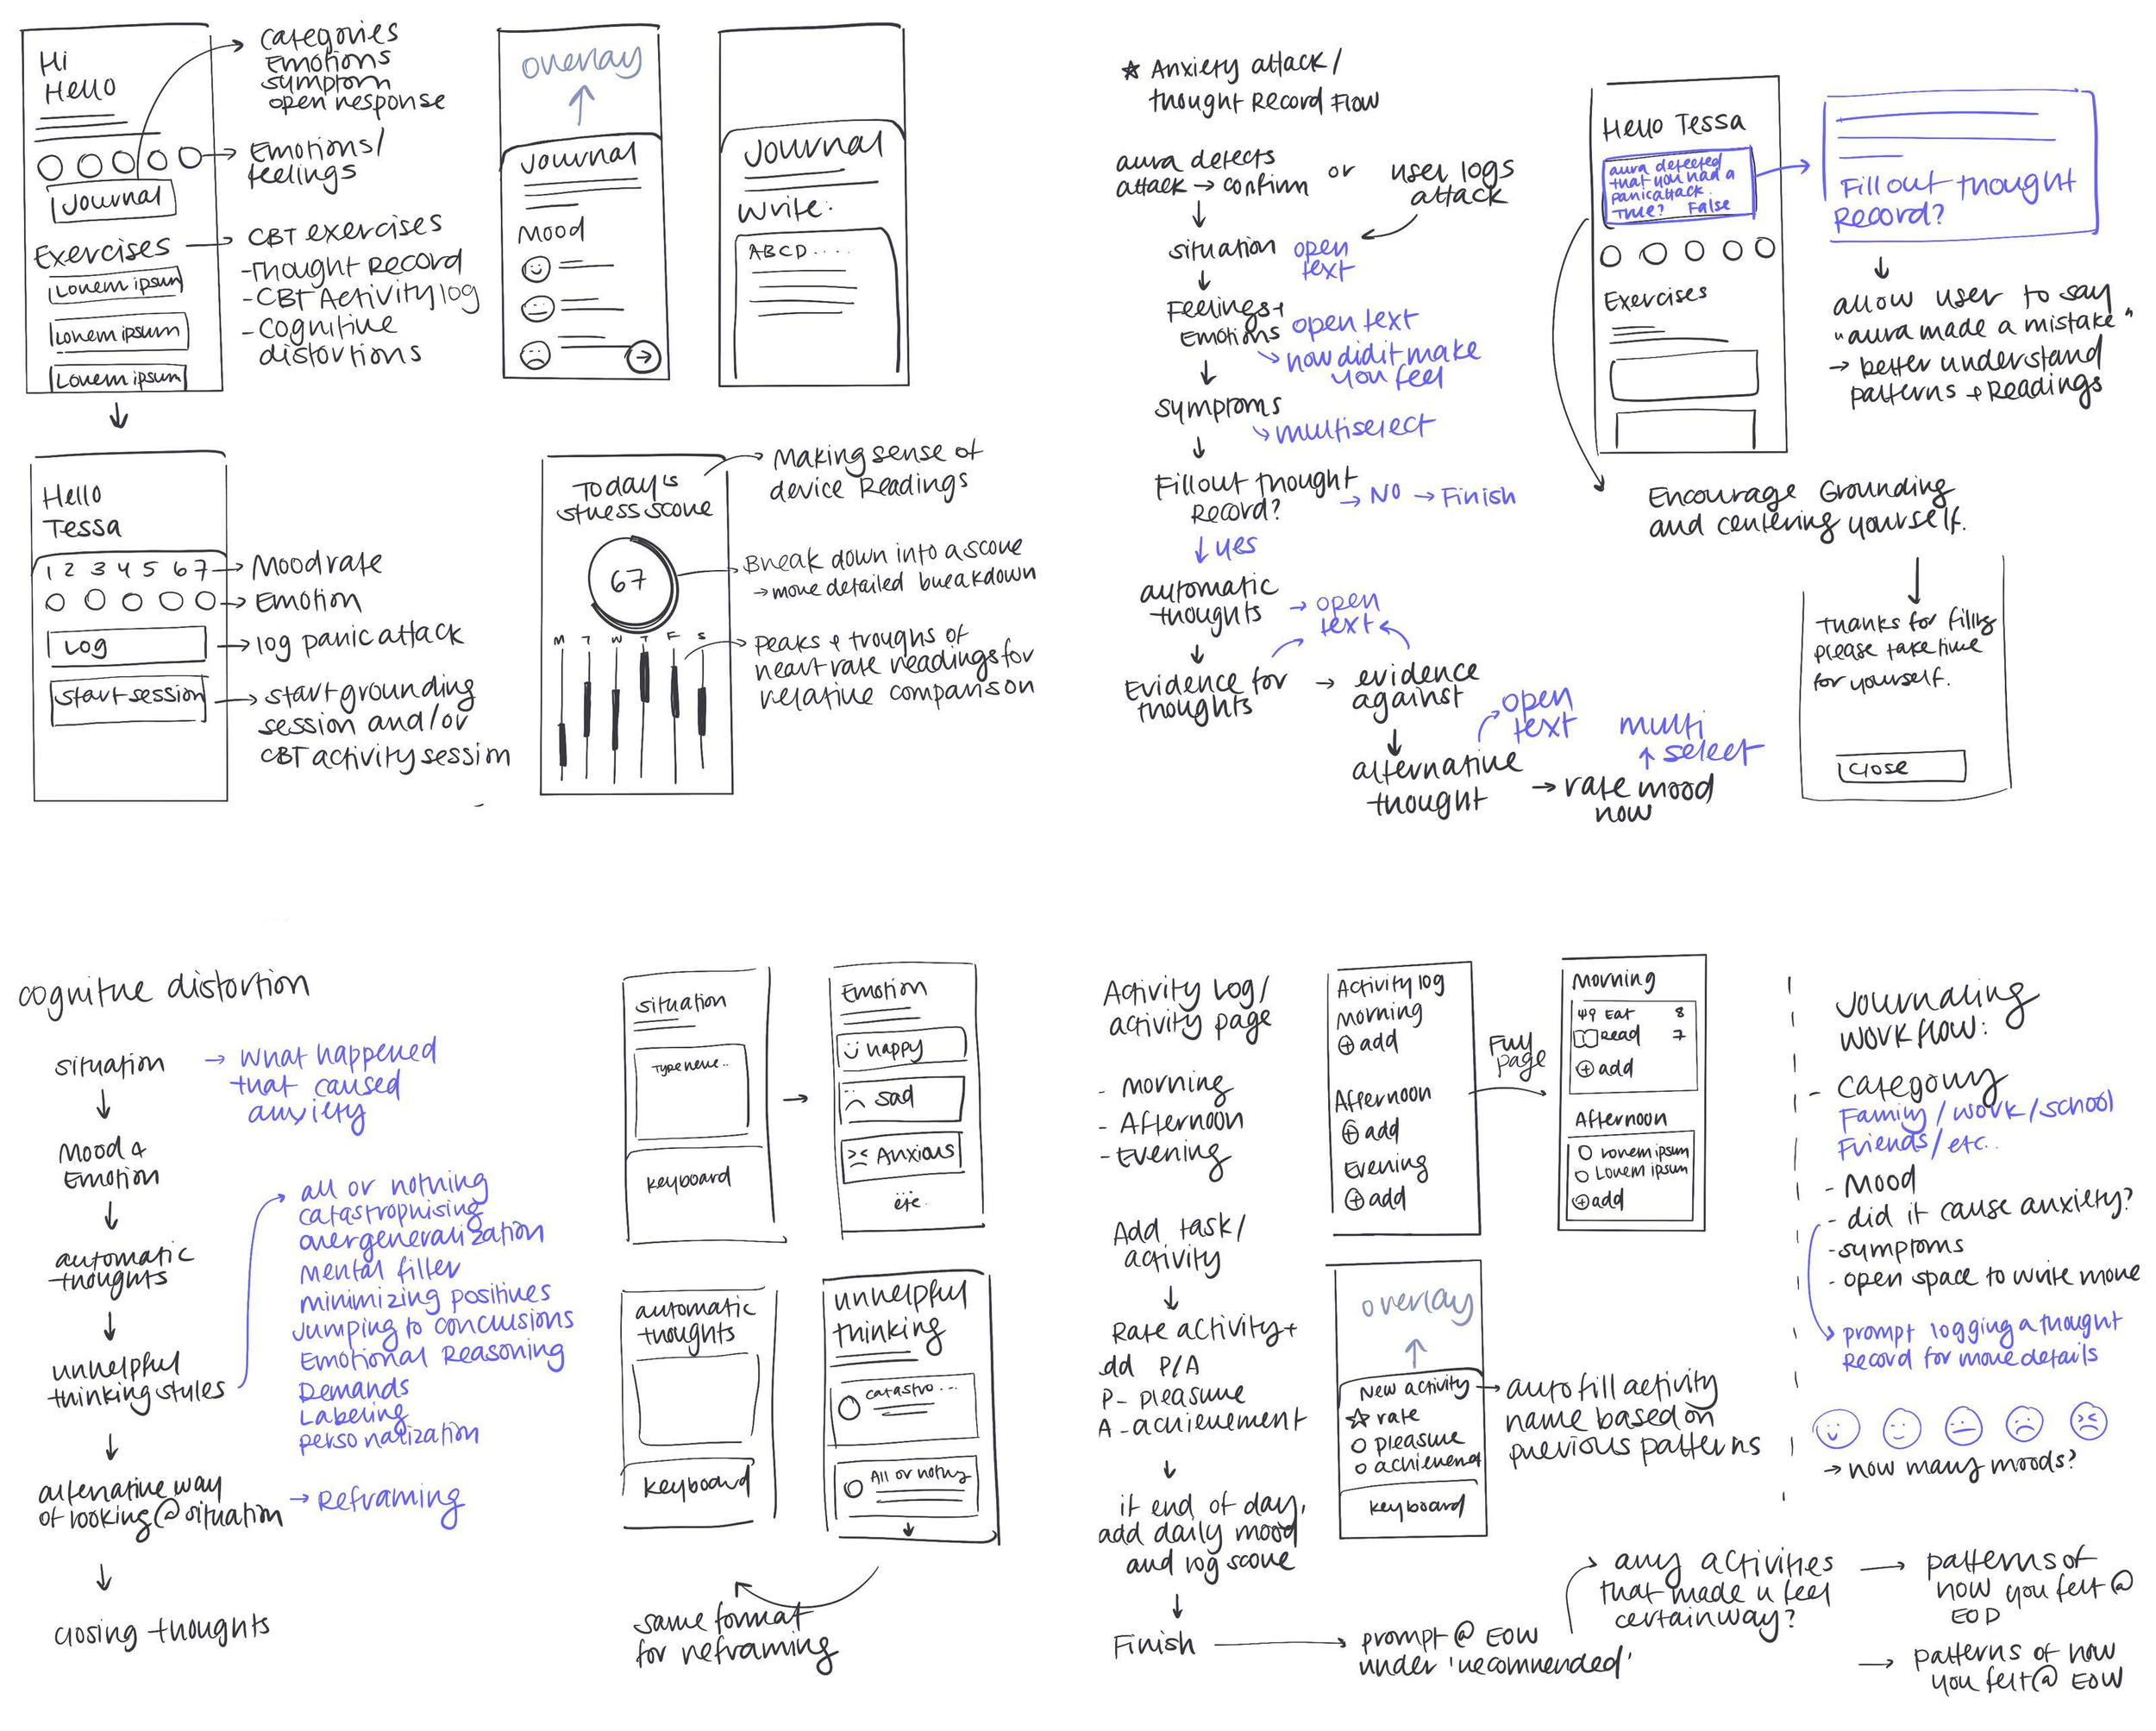 Hi
Hello
Journal
Exercises
Lorem ipsum
Lorem ipsum
Lorem ipsum
categories
Emotions
symptom
open response
Emotions/
feelings
CBT exercises
-Thought Record
-CBT Activity log
-Cognitive
distortions
overlay
Journal
Mood
Journal
Write:
ABCD....
Hello
Tessa
1 2 3 4 5 6 7
Log
start session
Mood rate
Emotion
log panic attack
start grounding
session and/or
CBT activity session
Today's
stress score
67
M T W T F S
Making sense of
device Readings
Break down into a score
→ more detailed breakdown
peaks + troughs of
heart rate readings for
relative comparison
* Anxiety attack/
thought Record Flow
aura detects
attack → confirm
or
user logs
attack
situation
open
text
Feelings +
Emotions
open text
how did it make
you feel
symptoms
multiselect
Fill out thought
Record?
→ NO → Finish
yes
automatic
thoughts
→ open
text
Evidence for
thoughts
→ evidence
against
alternative
thought
open
text
→ rate mood
now
multi
select
Hello Tessa
aura detected
that you had a
panic attack.
True? False
Exercises
Fill out thought
Record?
allow user to say
"aura made a mistake"
→ better understand
patterns + Readings
Encourage Grounding
and centering yourself.
thanks for filling
please take time
for yourself.
Close
cognitive distortion
situation
→ what happened
that caused
anxiety
Mood &
Emotion
automatic
thoughts
unhelpful
thinking styles
all or nothing
catastrophising
overgeneralization
mental filter
minimizing positives
Jumping to conclusions
Emotional Reasoning
Demands
Labeling
personalization
alternative way
of looking @ situation
→ Reframing
closing thoughts
situation
Type here..
keyboard
Emotion
happy
sad
Anxious
etc.
automatic
thoughts
keyboard
unhelpful
thinking
catastro...
All or nothing
same format
for reframing
Activity Log/
activity page
- morning
- Afternoon
- Evening
Add task/
activity
Rate activity +
dd P/A
P- pleasure
A - achievement
if end of day,
add daily mood
and log score
Finish
Activity log
morning
+ add
Afternoon
+ add
Evening
+ add
Full
page
Morning
Eat 8
Read 7
+ add
Afternoon
Lorem ipsum
Lorem ipsum
+ add
overlay
New activity
rate
pleasure
keyboard
autofill activity
name based on
previous patterns
prompt @ EOW
under 'recommended'
any activities
that made u feel
certain way?
patterns of
how you felt @
EOD
patterns of how
you felt @ EOW
Journaling
workflow:
- Category
Family / work / school
Friends / etc..
- Mood
- did it cause anxiety?
- symptoms
- open space to write more
prompt logging a thought
Record for more details
→ how many moods?